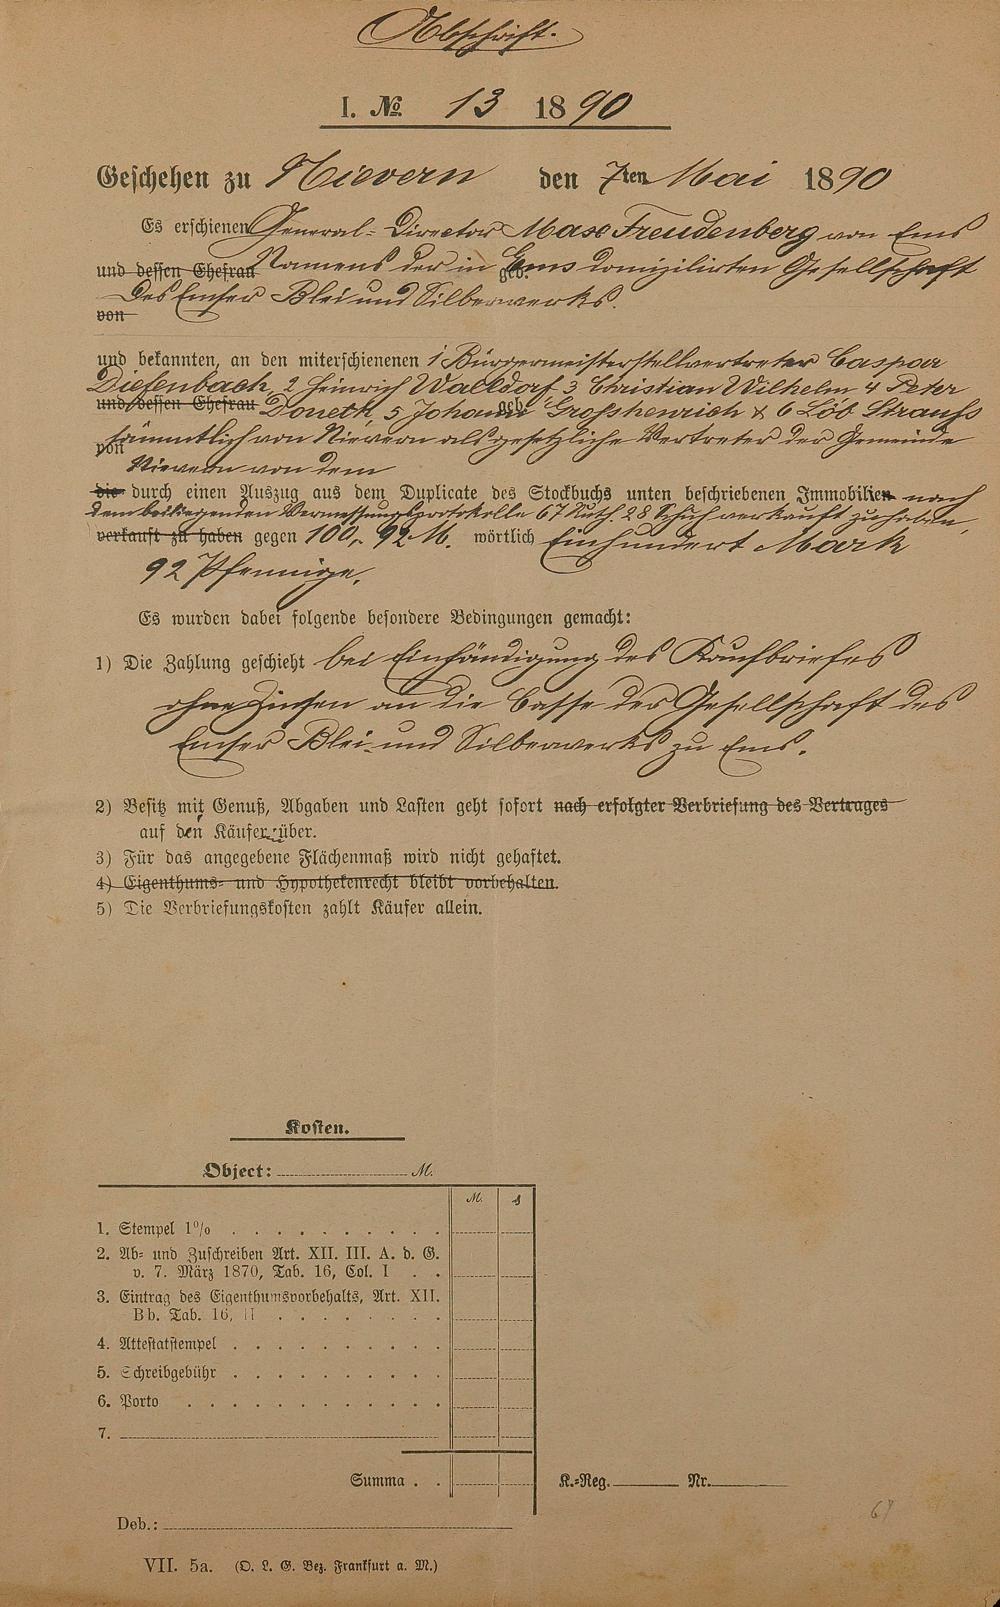 Abschrift.
I. № 13 1890
Geschehen zu Nievern den 7ten Mai 1890
Es erschienen General-Director Max Freudenberg von Ems
und dessen Ehefrau Namens der in geb. Ems domizilirten Gesellschaft
von des Emser Blei und Silberwerks.
und bekannten, an den miterschienenen 1 Bürgermeisterstellvertreter Caspar
Diefenbach, 2 Heinrich Walldorf 3 Christian Wilhelm 4 Peter
und dessen Ehefrau Doneth, 5 Johann geb. Großhenrich & 6 Löb Strauß
von sämmtlich von Nievern als gesetzliche Vertreter der Gemeinde
Nievern von dem
die durch einen Auszug aus dem Duplicate des Stockbuchs unten beschriebenen Immobilien nach
dem beiliegenden Vermessungsprotokolle 67 Ruth. 28 Schuh verkauft zu haben,
verkauft zu haben gegen 100, 92 M. wörtlich Einhundert Mark
92 Pfennige.
Es wurden dabei folgende besondere Bedingungen gemacht:
1) Die Zahlung geschieht bei Einhändigung des Kaufbriefes
ohne Zinsen an die Casse der Gesellschaft des
Emser Blei- und Silberwerks zu Ems.
2) Besitz mit Genuß, Abgaben und Lasten geht sofort nach erfolgter Verbriefung des Vertrages
auf den Käufer über.
3) Für das angegebene Flächenmaß wird nicht gehaftet.
4) Eigenthums- und Hypothekenrecht bleibt vorbehalten.
5) Die Verbriefungskosten zahlt Käufer allein.
Kosten.
Object: M.
M. ₰
1. Stempel 1%
2. Ab- und Zuschreiben Art. XII. III. A. d. G.
v. 7. März 1870, Tab. 16, Col. I
3. Eintrag des Eigenthumsvorbehalts, Art. XII.
B b. Tab. 16, II
4. Attestatstempel
5. Schreibgebühr
6. Porto
7.
Summa
K.-Reg. Nr.
67
Deb.:
VII. 5a. (O. L. G. Bez. Frankfurt a. M.)